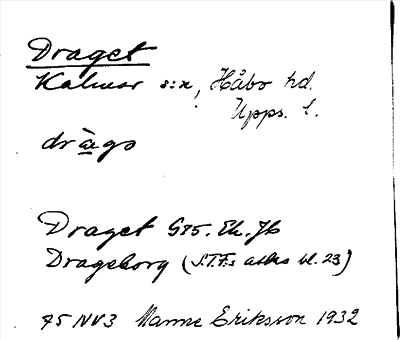 Draget
Kalmar s:n, Håbo hd.
Upps. l.
dràgo
Draget G75. Ek. Jb
Dragsborg (S.T.F:s atlas bl. 23)
75 NV3 Manne Eriksson 1932